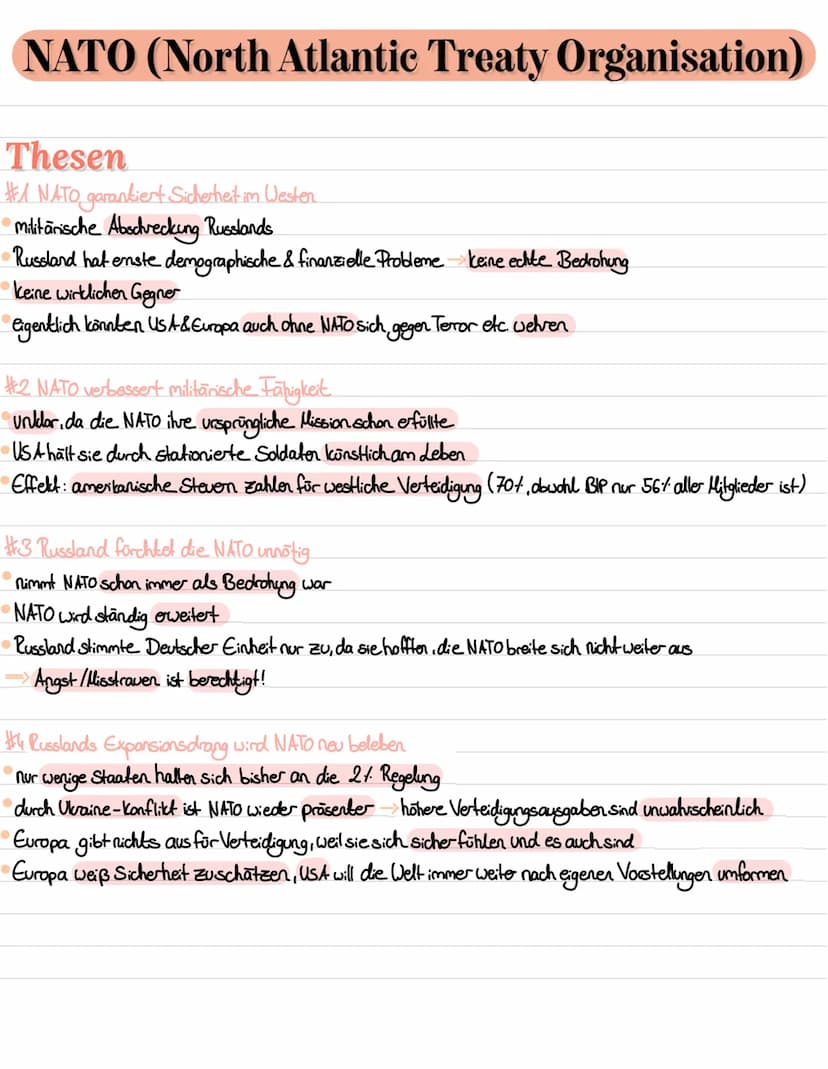 NATO (North Atlantic Treaty Organisation)
Thesen
#1 NATO garantiert Sicherheit im Westen
• militärische Abschreckung Russlands
• Russland hat ernste demographische & finanzielle Probleme → keine echte Bedrohung
• keine wirklichen Gegner
• eigentlich könnten USA & Europa auch ohne NATO sich gegen Terror etc. wehren
#2 NATO verbessert militärische Fähigkeit
• unklar, da die NATO ihre ursprüngliche Mission schon erfüllte
• USA hält sie durch stationierte Soldaten künstlich am Leben
• Effekt: amerikanische Steuern zahlen für westliche Verteidigung (70%, obwohl BIP nur 56% aller Mitglieder ist)
#3 Russland fürchtet die NATO unnötig
• nimmt NATO schon immer als Bedrohung war
• NATO wird ständig erweitert
• Russland stimmte Deutscher Einheit nur zu, da sie hofften, die NATO breite sich nicht weiter aus
⇒ Angst/Misstrauen ist berechtigt!
#4 Russlands Expansionsdrang wird NATO neu beleben
• nur wenige Staaten halten sich bisher an die 2% Regelung
• durch Ukraine-Konflikt ist NATO wieder präsenter → höhere Verteidigungsausgaben sind unwahrscheinlich
• Europa gibt nichts aus für Verteidigung, weil sie sich sicher fühlen und es auch sind
• Europa weiß Sicherheit zu schätzen, USA will die Welt immer weiter nach eigenen Vorstellungen umformen